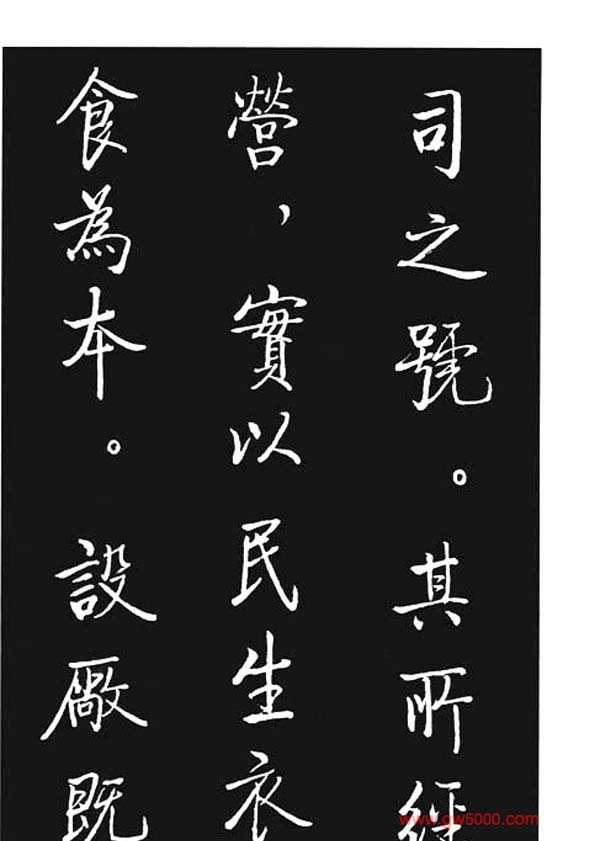 司之號。其所經
營，實以民生衣
食為本。設廠既
www.gw5000.com